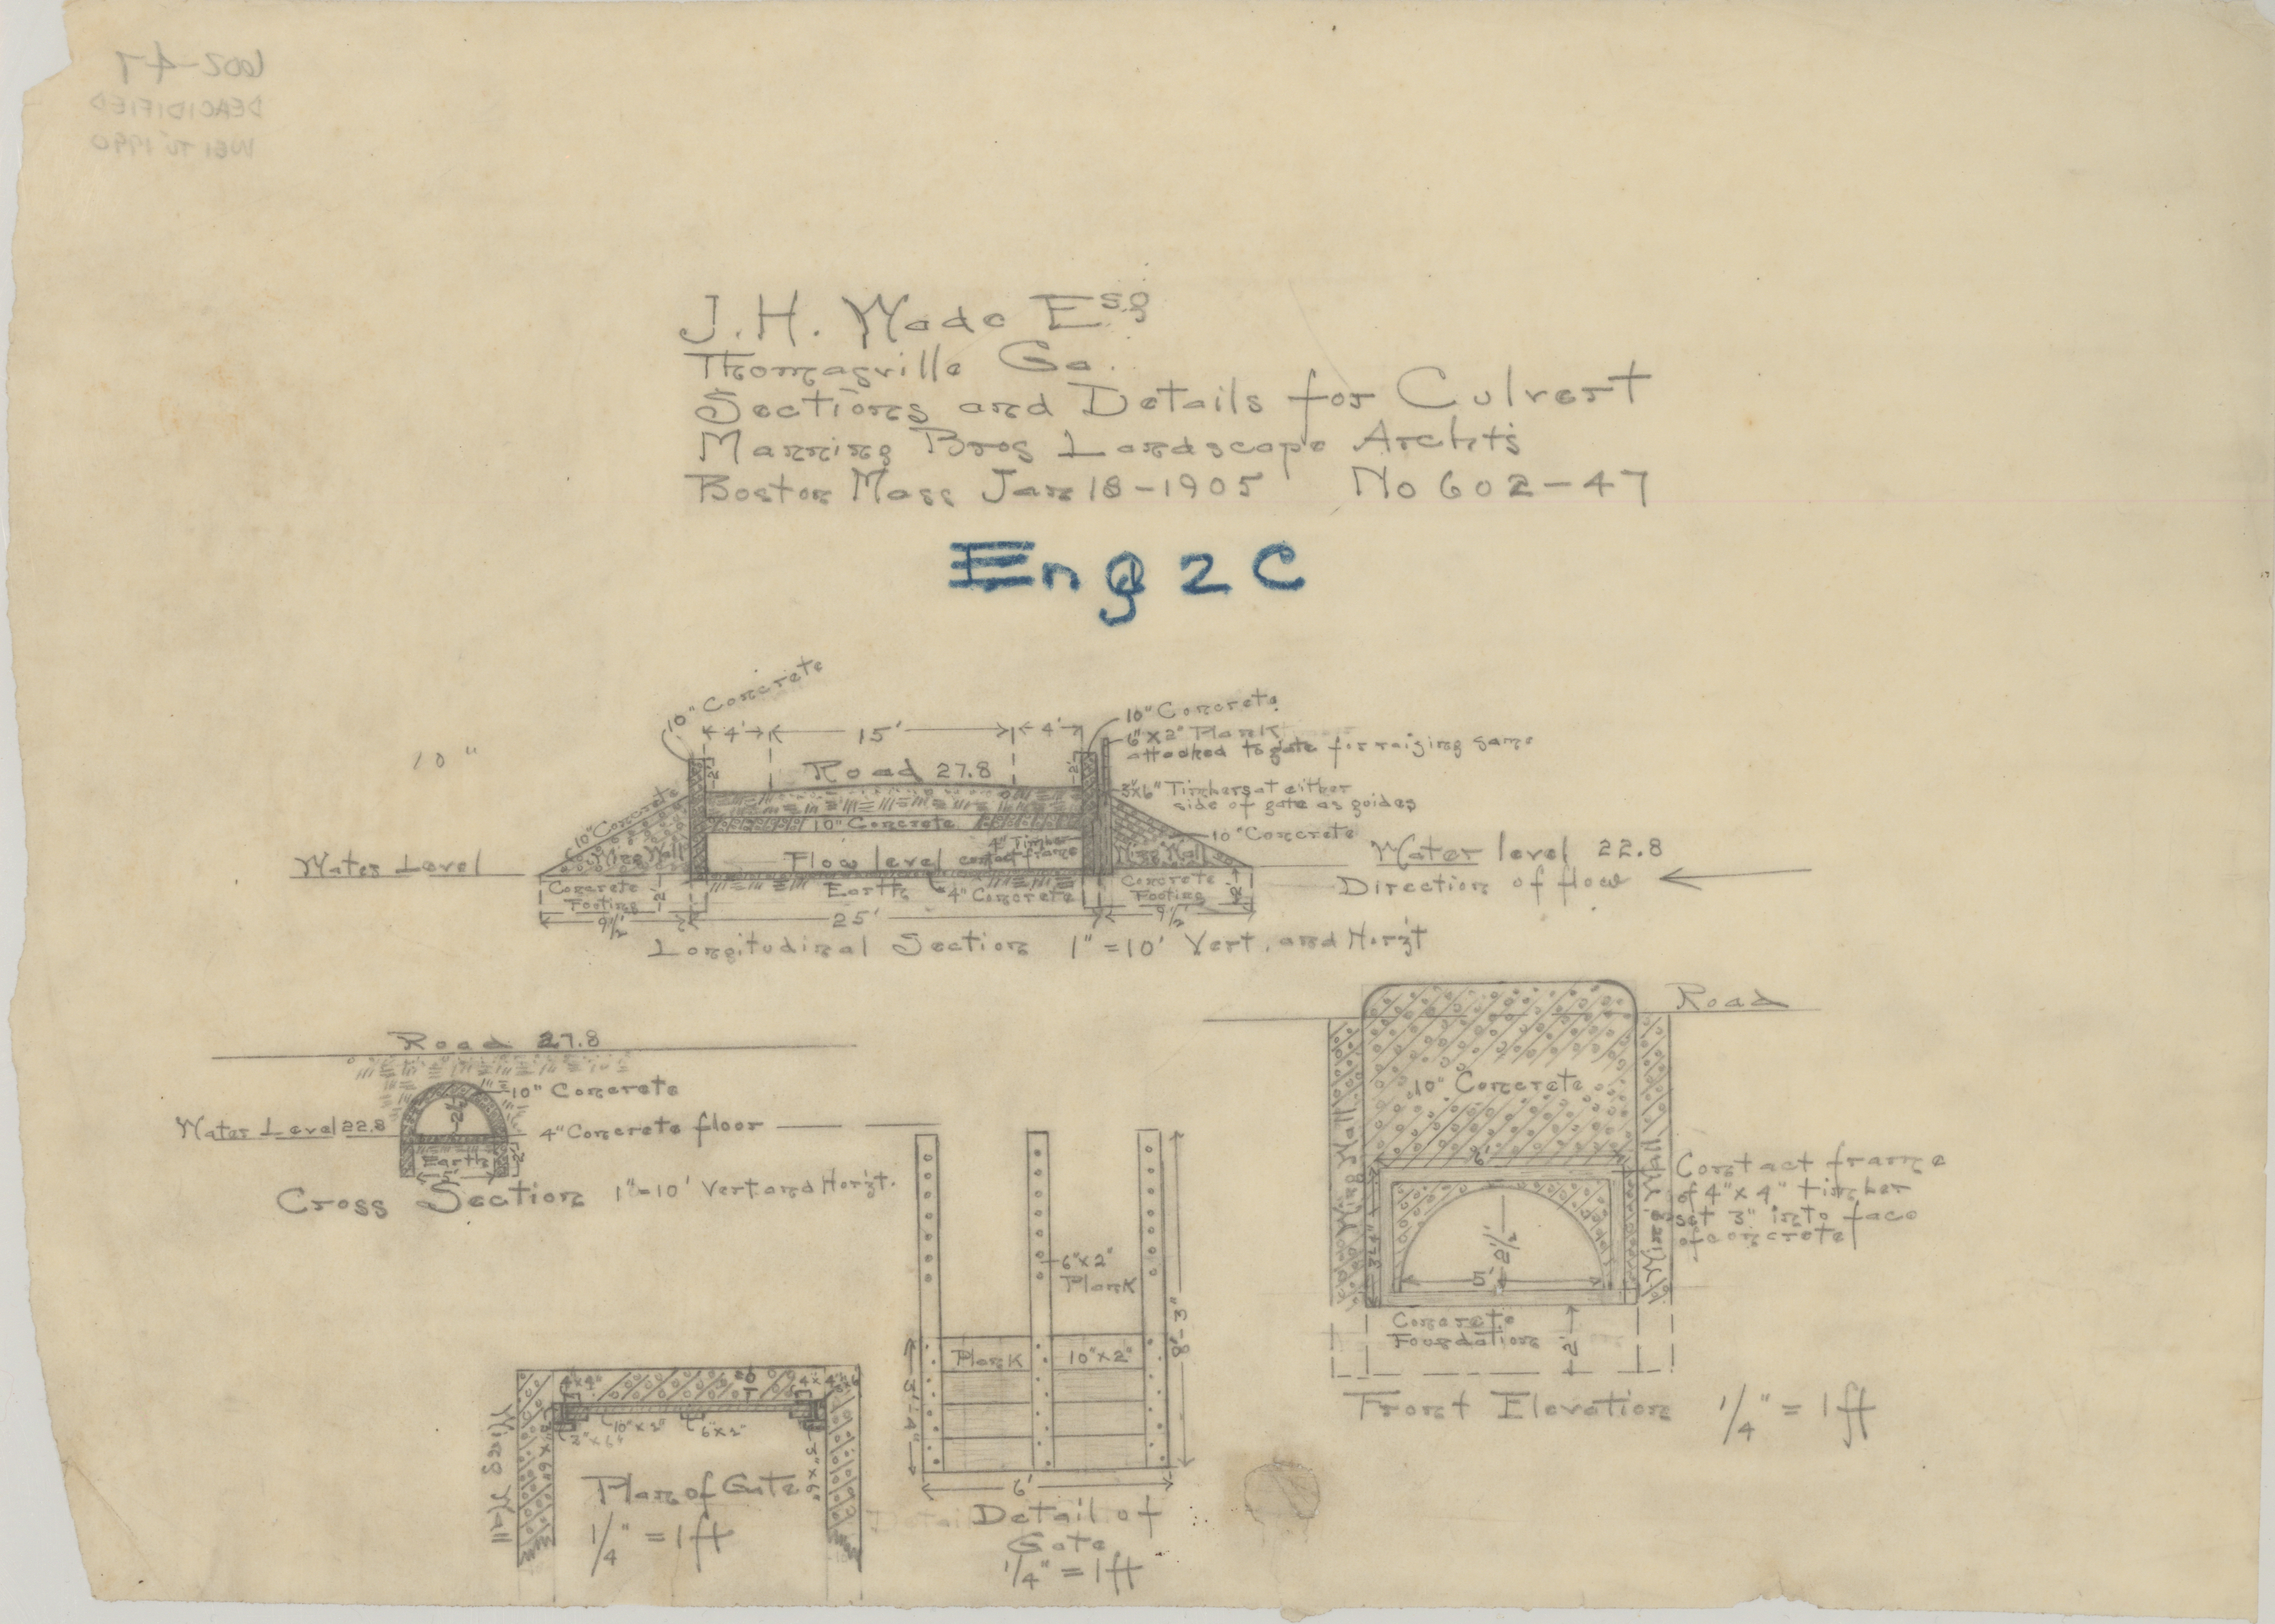 602-47
DEACIDIFIED
1990
J. H. Wade Esq
Thomasville Ga.
Sections and Details for Culvert
Manning Bros Landscape Archts
Boston Mass Jan 18-1905 No 602-47
Eng 2 C
10" Concrete
4' 15' 4'
10" Concrete
6"x2" Plank
attached to gate for raising same
10"
2' Road 27.8 2'
3"x6" Timbers at either
side of gate as guides
10" Concrete
10" Concrete
10" Concrete
4" Timber
contact frame
Wing Wall
Flow level
Wing Wall
Water Level
Water level 22.8
Direction of flow
Concrete
Footing
2'
Earth
4" Concrete
Concrete
Footing
2'
9 1/2' 25' 9 1/2'
Longitudinal Section 1" = 10' Vert. and Horizt
Road 27.8
10" Concrete
2 1/2'
Water Level 22.8
4" Concrete floor
Earth
2'
5'
Cross Section 1"=10' Vert and Horizt.
Road
10" Concrete
Wing Wall
Wing Wall
6'
Contact frame
of 4"x4" timber
set 3" into face
of concrete
2 1/2'
5'
Concrete
Foundation
2'
Front Elevation 1/4" = 1ft
6"x2"
Plank
8'-3"
Plank 10"x2"
3'-4"
6'
Detail of
Gate
1/4" = 1ft
4"x4"
4"x4"
10"x2" 6"x2"
3"x6"
Wing Wall
Plan of Gate
1/4" = 1ft